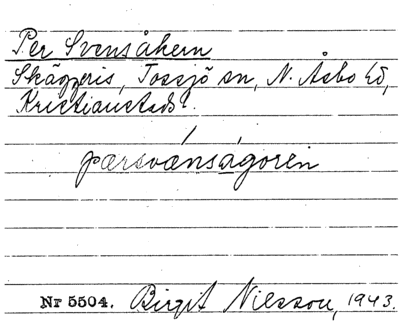 Per Svensåkern
Skäggeris, Tossjö sn, N. Åsbo hd,
Kristianstads l.
pærsvænsågoren
Nr 5504. Birgit Nilsson, 1943.